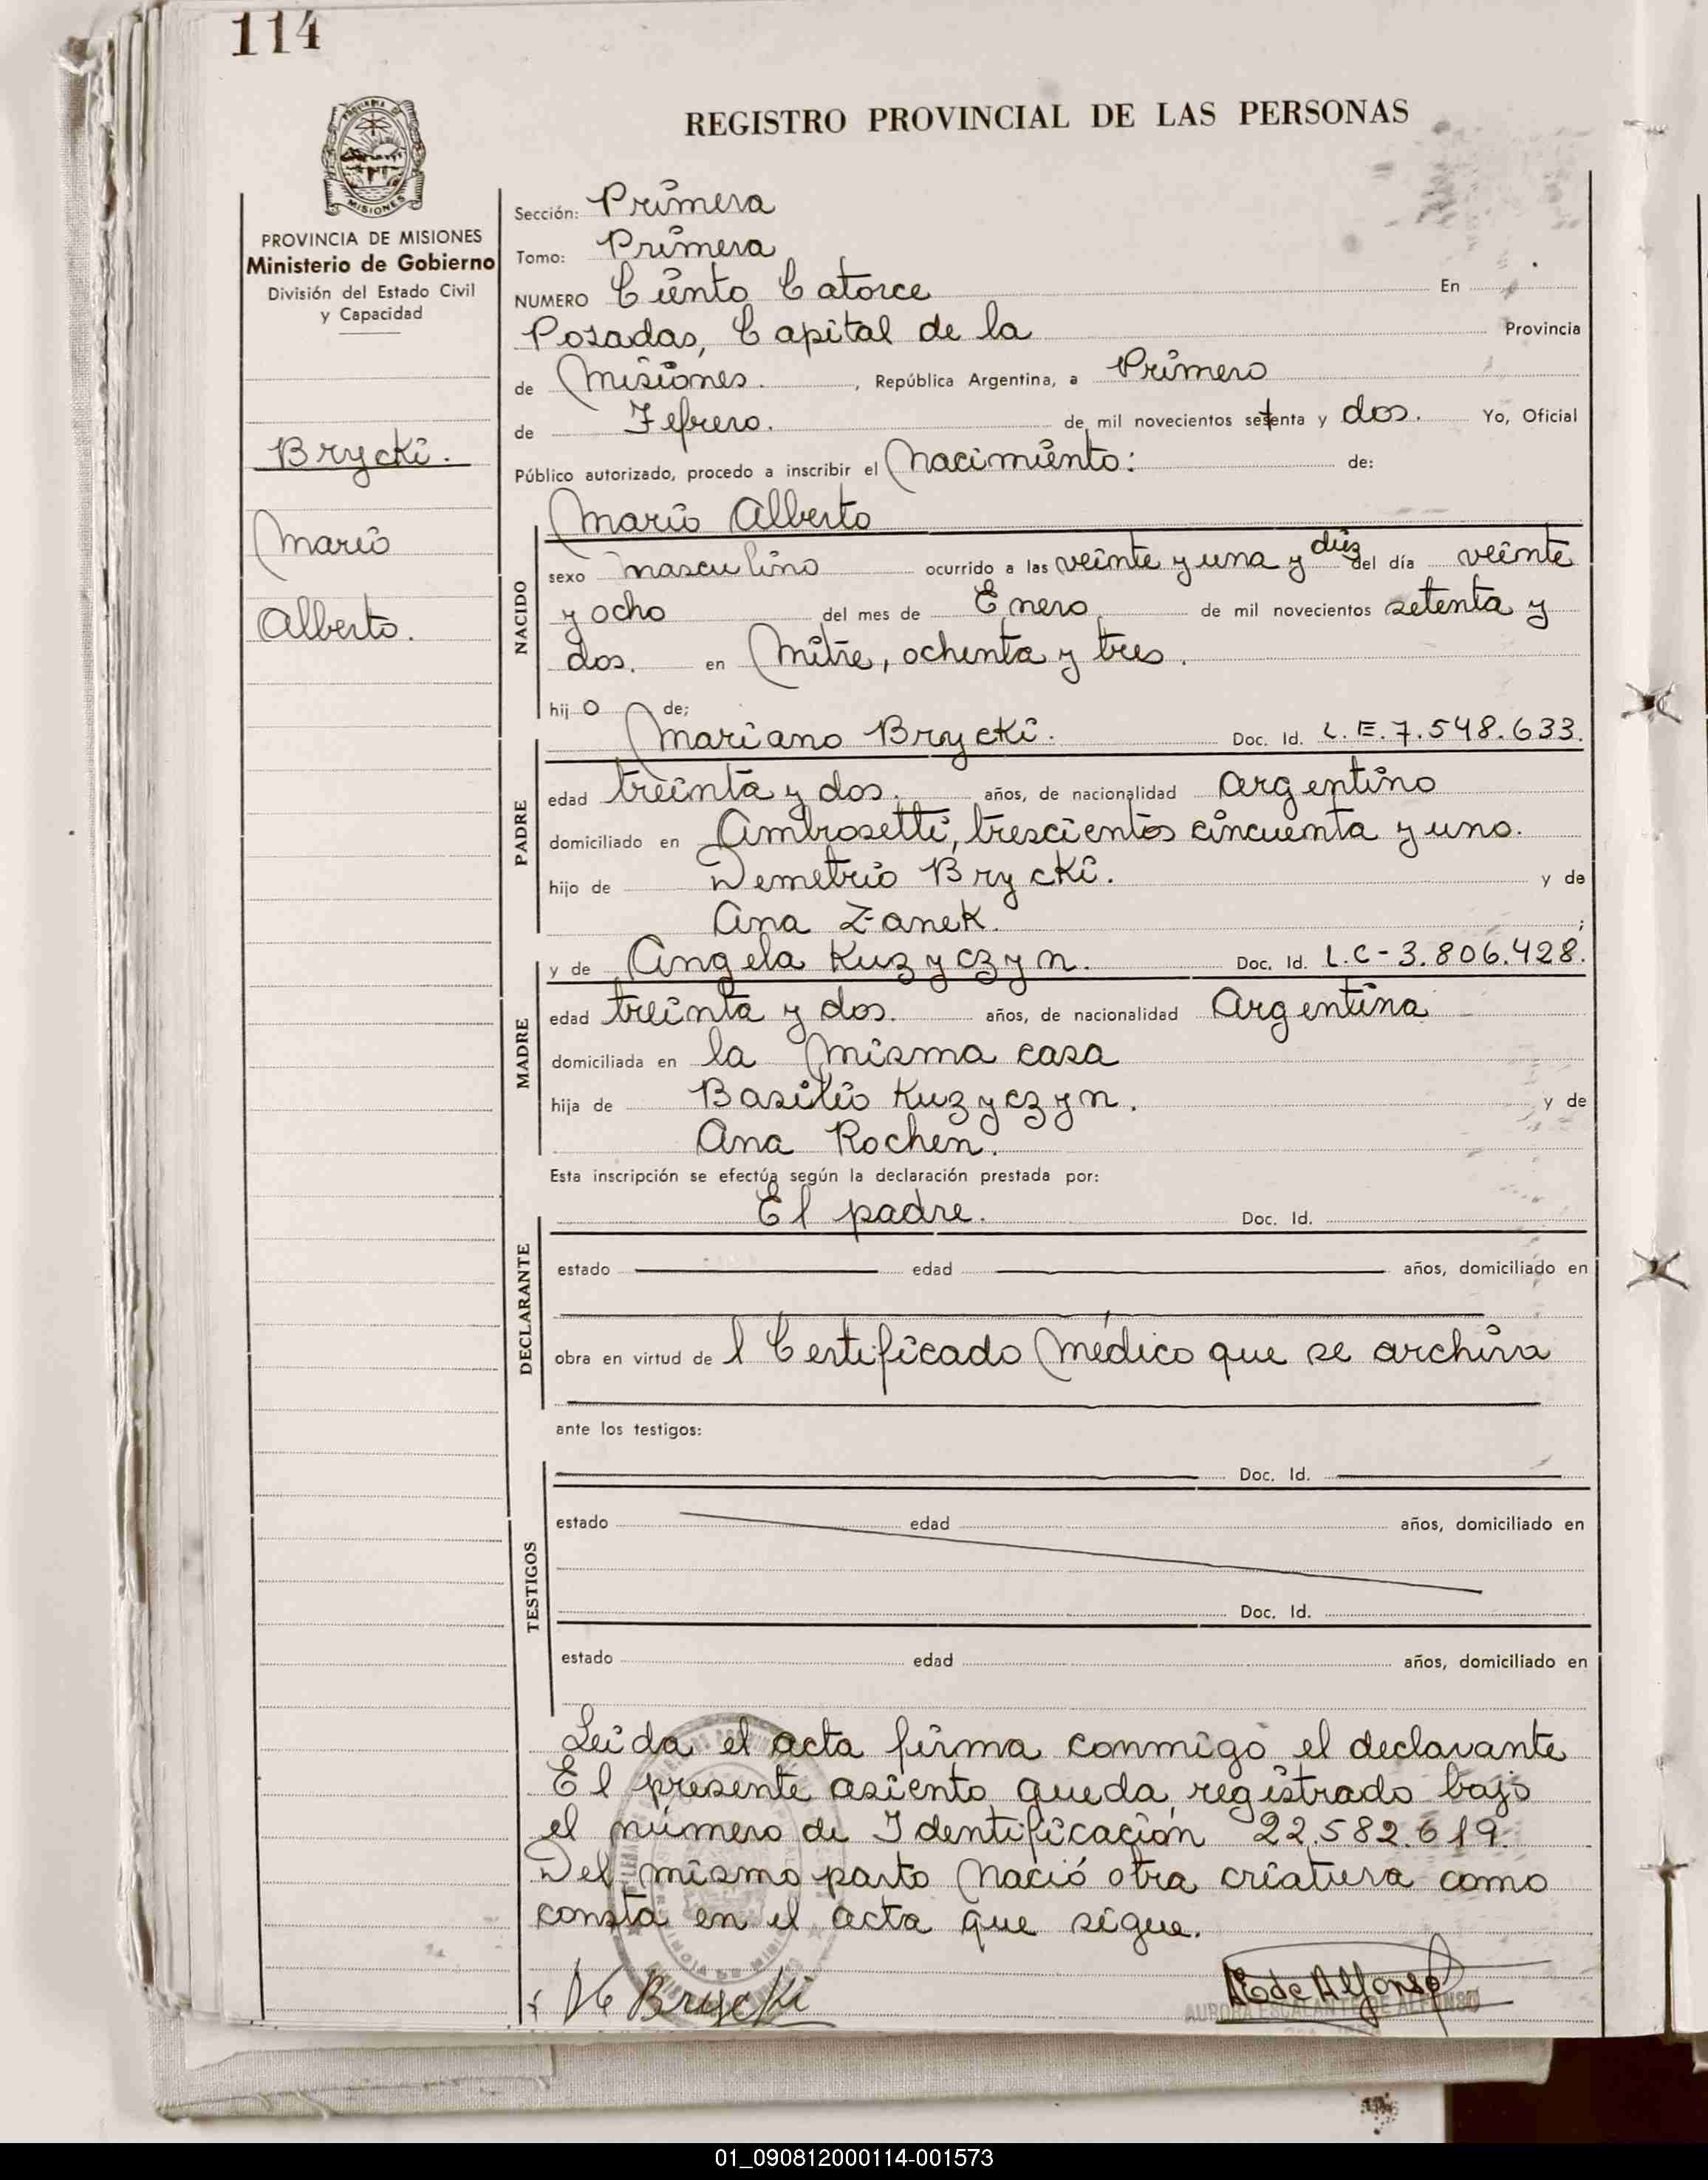 114
PROVINCIA DE MISIONES
MISIONES
PROVINCIA DE MISIONES
Ministerio de Gobierno
División del Estado Civil
y Capacidad
Brycki.
Mario
Alberto.
REGISTRO PROVINCIAL DE LAS PERSONAS
Sección: Primera
Tomo: Primera
NUMERO Ciento Catorce En
Posadas, Capital de la Provincia
de Misiones. , República Argentina, a Primero
de Febrero. de mil novecientos setenta y dos. Yo, Oficial
Público autorizado, procedo a inscribir el Nacimiento: de:
Mario Alberto
NACIDO
sexo masculino ocurrido a las veinte y una y diez del día veinte
y ocho del mes de Enero de mil novecientos setenta y
dos. en Mitre, ochenta y tres.
hij o de;
Mariano Brycki. Doc. Id. L.E.7.548.633.
PADRE
edad treinta y dos. años, de nacionalidad Argentino
domiciliado en Ambrosetti, trescientos cincuenta y uno.
hijo de Demetrio Brycki. y de
Ana Zanek. ;
y de Angela Kuzyczyn. Doc. Id. L.C-3.806.428.
MADRE
edad treinta y dos. años, de nacionalidad Argentina
domiciliada en la misma casa
hija de Basilio Kuzyczyn. y de
Ana Rochen.
Esta inscripción se efectúa según la declaración prestada por:
El padre. Doc. Id.
DECLARANTE
estado edad años, domiciliado en
obra en virtud de l Certificado Médico que se archiva
ante los testigos:
Doc. Id.
TESTIGOS
estado edad años, domiciliado en
Doc. Id.
estado edad años, domiciliado en
Leida el acta firma conmigo el declarante
El presente asiento queda registrado bajo
el número de Identificación 22.582.619.
Del mismo parto Nació otra criatura como
consta en el acta que sigue.
Brycki
de Alfonso
AURORA ESCALANTE DE ALFONSO
01_090812000114-001573